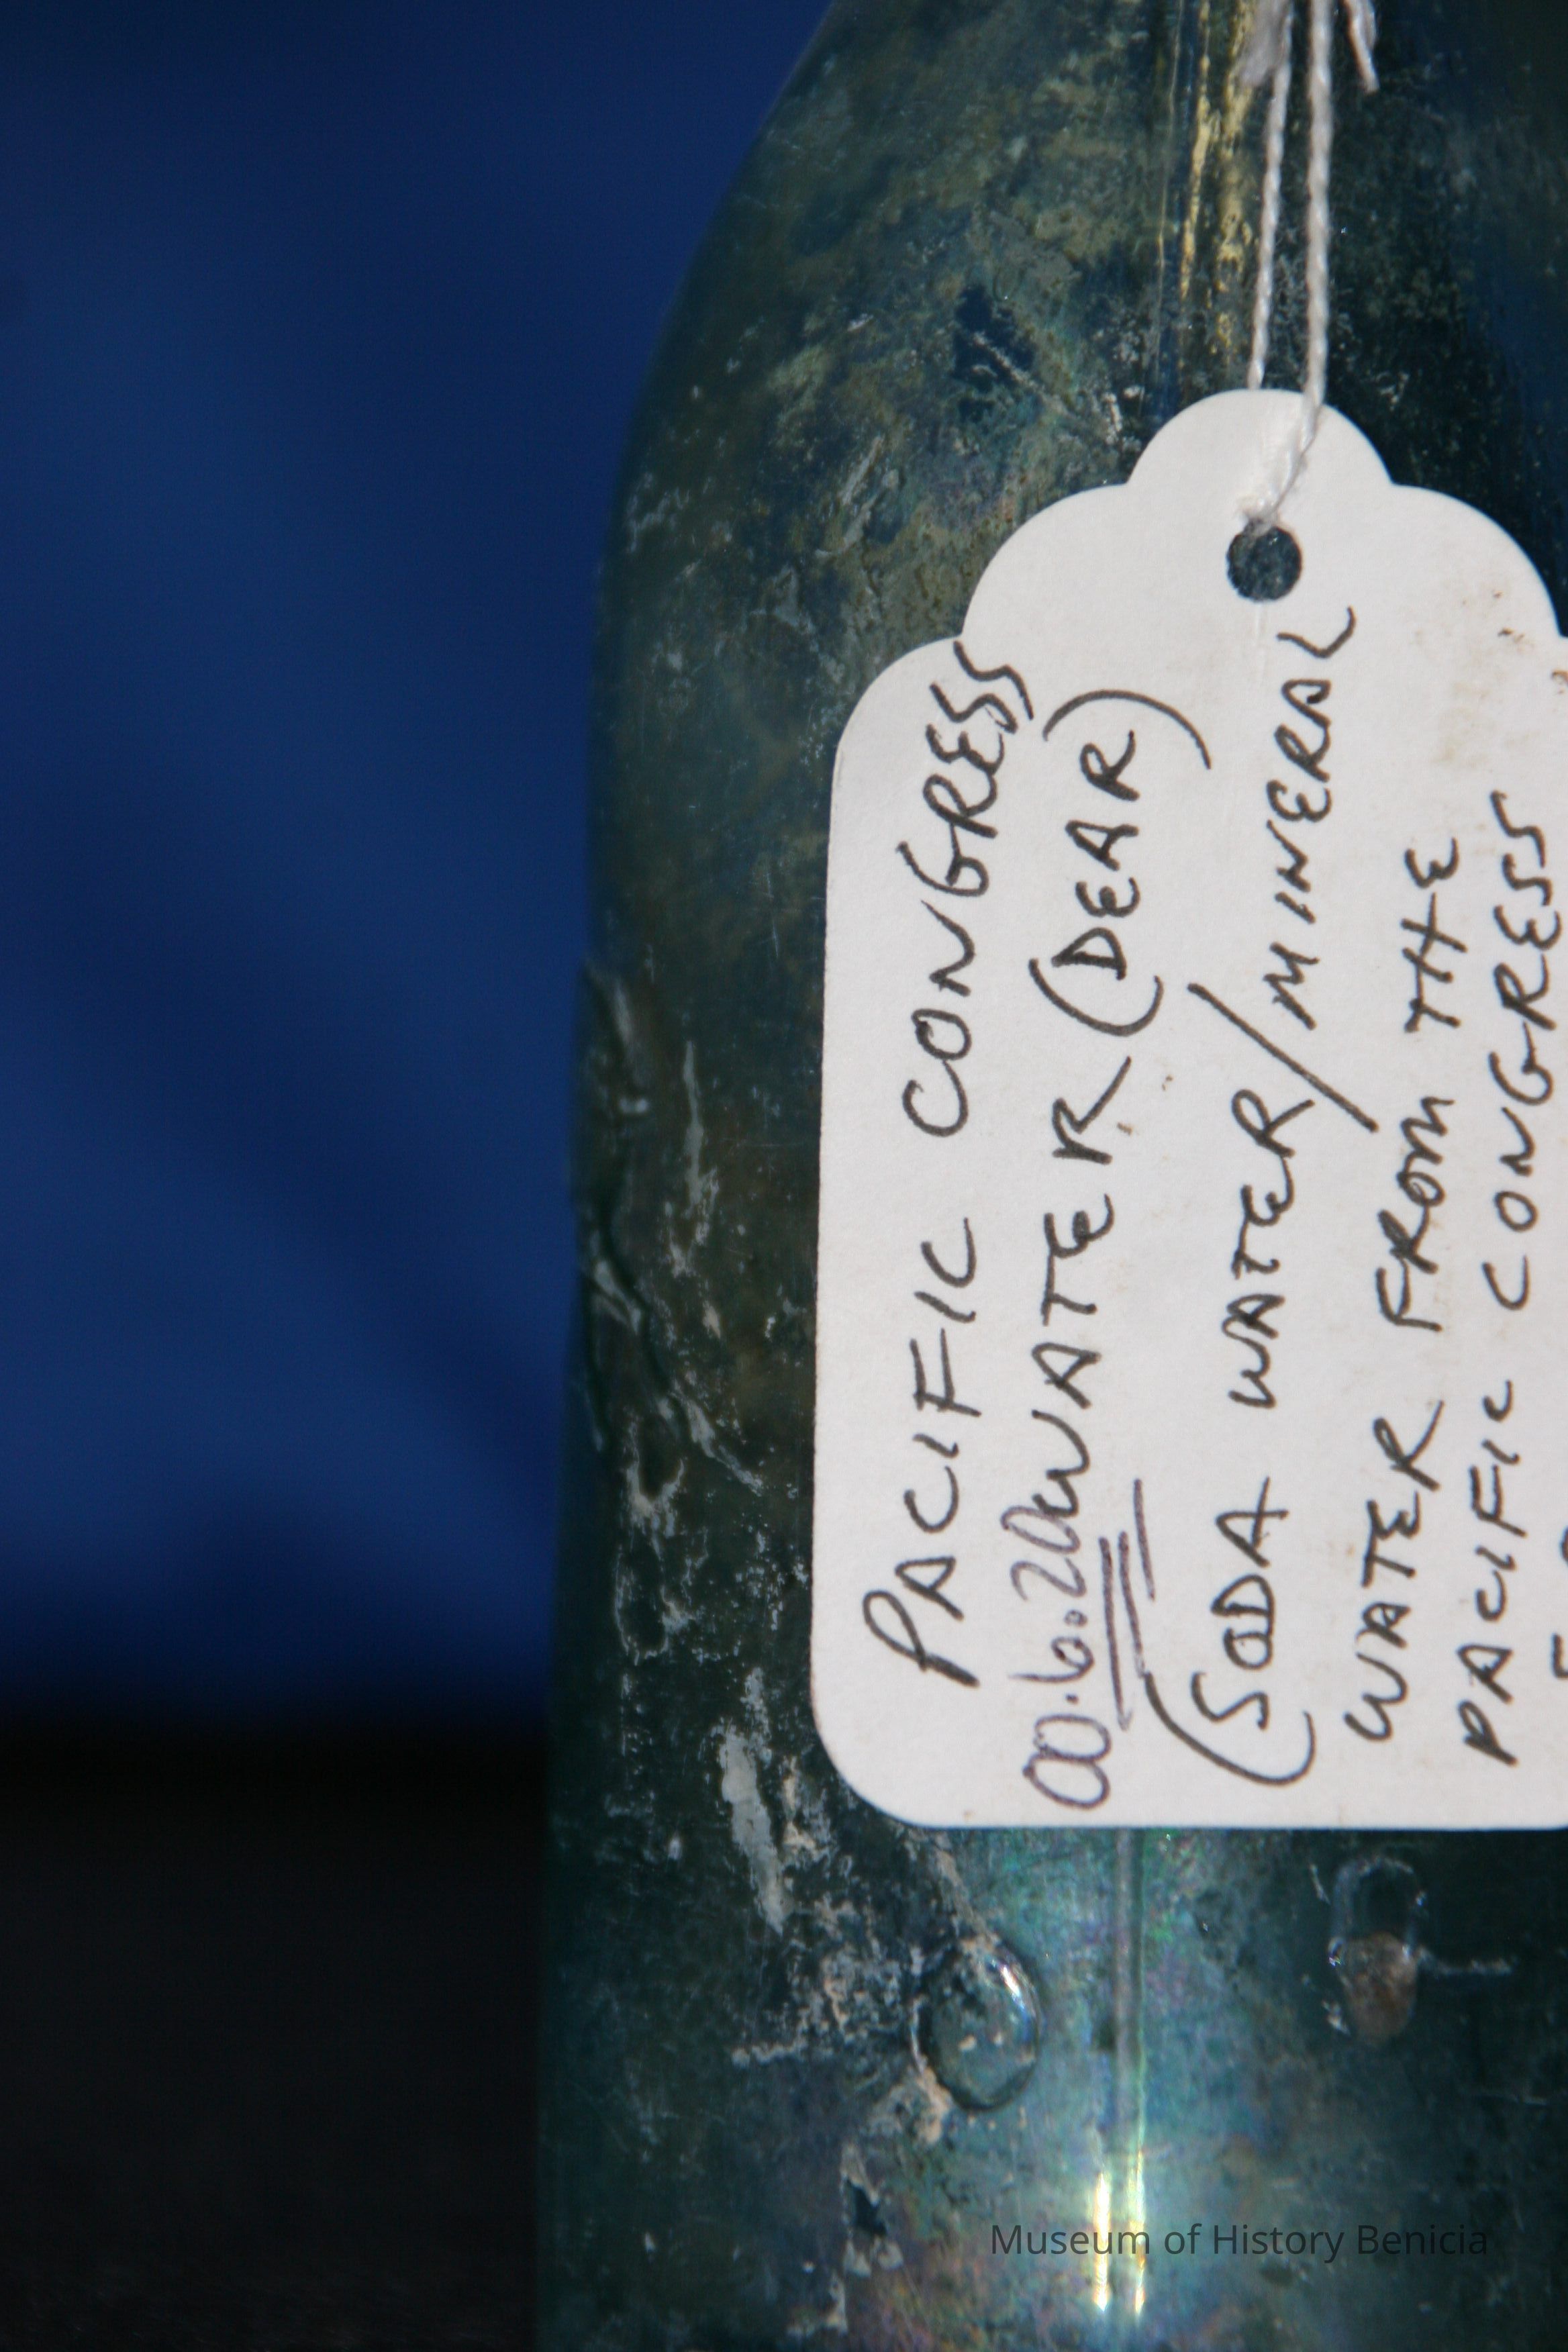 PACIFIC CONGRESS
00.6.20 WATER (DEAR)
(SODA WATER/MINERAL
WATER FROM THE
PACIFIC CONGRESS
Museum of History Benicia